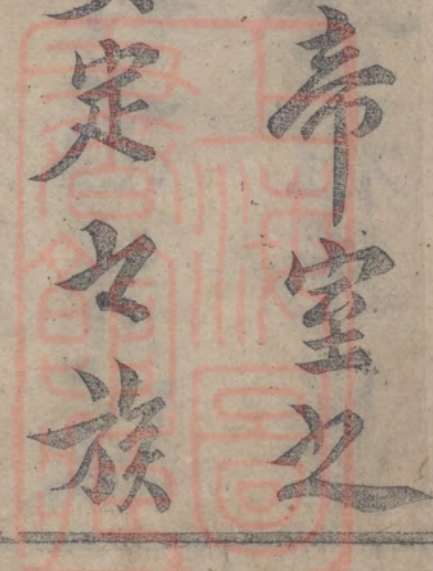 帝室之
定之族